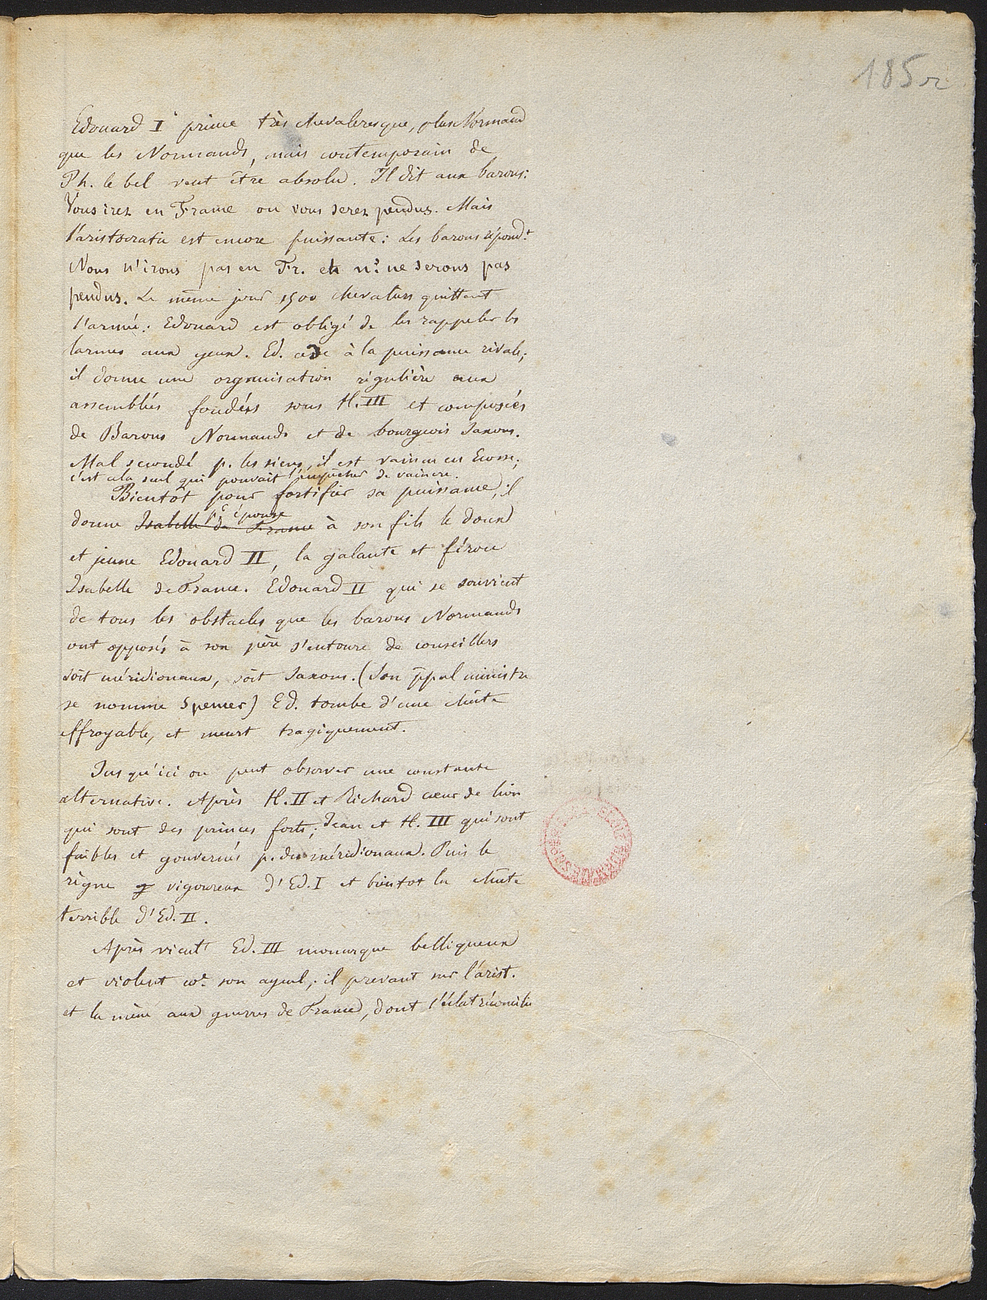 185 r
Edouard I.er prince très chevaleresque, plus Normand
que les Normands, mais contemporain de
Ph. le bel veut être absolu. Il dit aux barons:
Vous irez en France ou vous serez pendus. Mais
l'aristocratie est encore puissante: Les barons répond.t
Nous n'irons pas en Fr. et n.s ne serons pas
pendus. Le même jour 1500 chevaliers quittent
l'armée: Edouard est obligé de les rappeler les
larmes aux yeux. Ed. cède à la puissance rivale;
il donne une organisation régulière aux
assemblées fondées sous H. III et composées
de Barons Normands et de bourgeois Saxons.
Mal secondé p. les siens, il est vaincu en Ecosse,
c'est cela seul qui pouvait l'empêcher de vaincre.
Bientôt pour fortifier sa puissance, il
donne Isabelle de France pr épouse à son fils le doux
et jeune Edouard II, la galante et féroce
Isabelle de France. Edouard II qui se souvient
de tous les obstacles que les barons Normands
ont opposés à son père s'entoure de conseillers
soit méridionaux, soit Saxons. (Son ppal ministre
se nomme Spencer) Ed. tombe d'une chûte
effroyable, et meurt tragiquement.
Jusqu'ici on peut observer une constante
alternative. Après H. II et Richard cœur de lion
qui sont des princes forts; Jean et H. III qui sont
faibles et gouvernés p. des méridionaux. Puis le
règne vigoureux d'Ed. I et bientôt la chûte
terrible d'Ed. II.
Après vient Ed. III monarque belliqueux
et violent co.e son ayeul; il prévaut sur l'arist.
et la mène aux guerres de France, dont l'éclat réconcilie